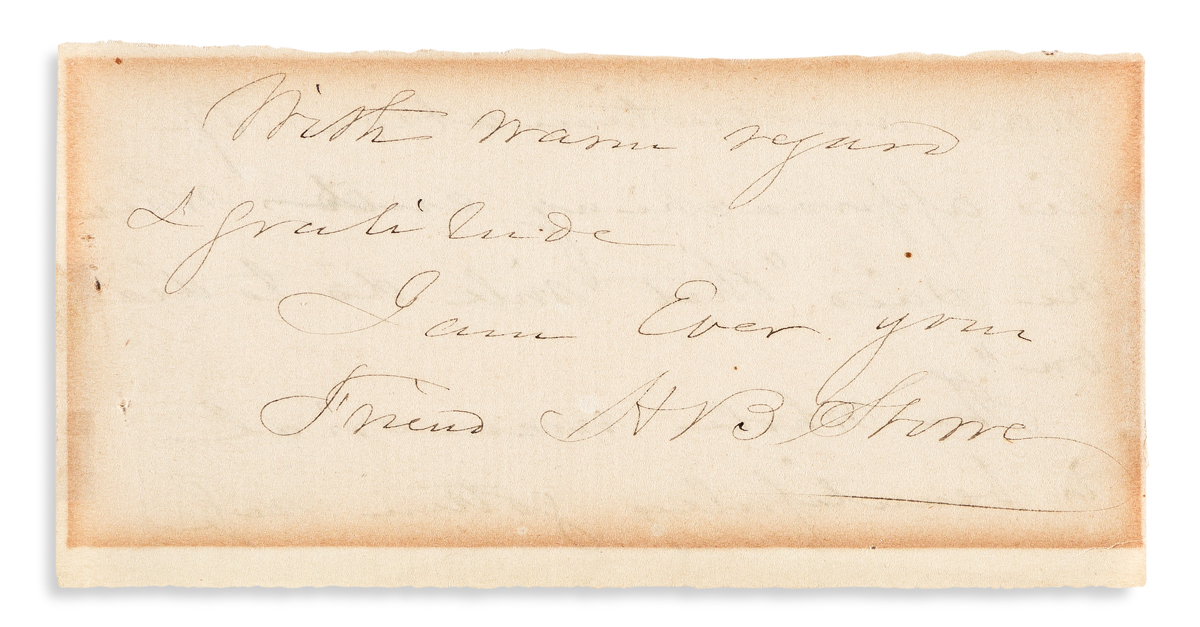 With warm regard
& gratitude
I am Ever your
Friend H B Stowe